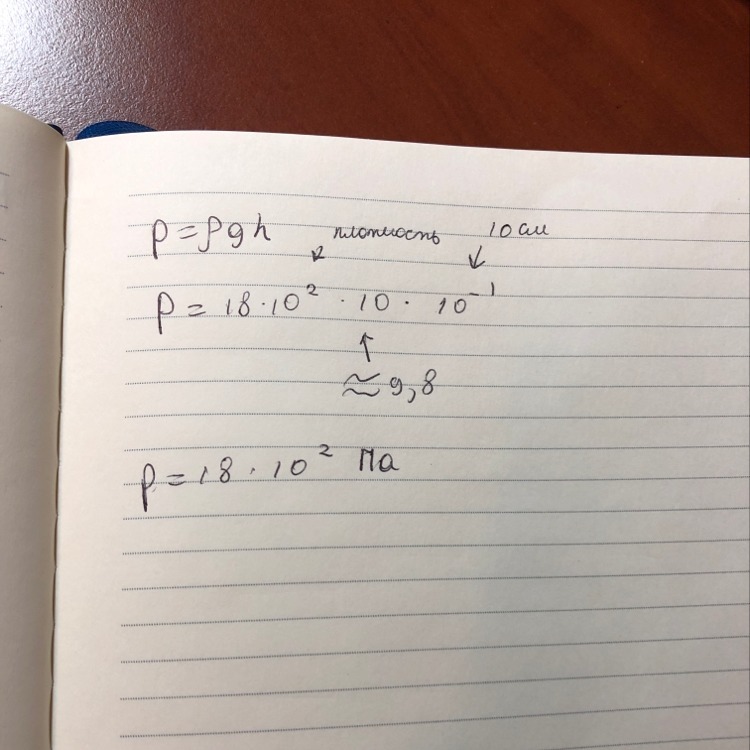 p=ρgh плотность 10 см
p = 18·10² · 10 · 10⁻¹
≈ 9,8
p = 18 · 10² Па